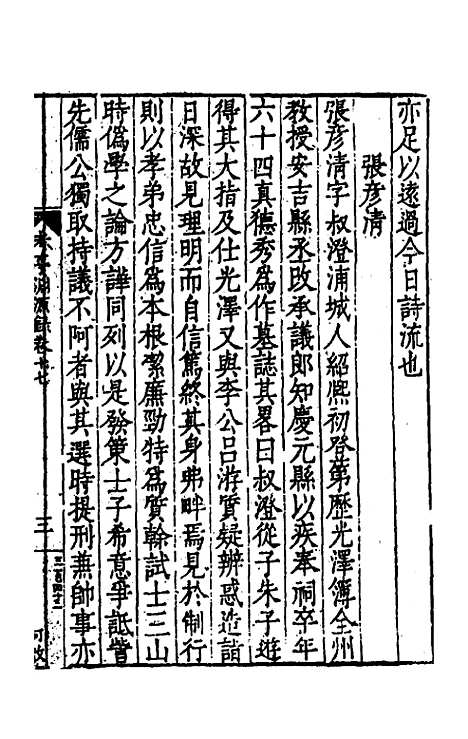 亦足以遠過今日詩流也
張彦清
張彦清字叔澄浦城人紹熙初登第歷光澤簿全州
教授安吉縣丞改承議郎知慶元縣以疾奉祠卒年
六十四真德秀爲作墓誌其畧曰叔澄從子朱子遊
得其大指及仕光澤又與李公吕游質疑辨惑造詣
日深故見理明而自信篤終其身弗畔焉見於制行
則以孝弟忠信爲本根潔廉勁特爲質榦試士三山
時僞學之論方譁同列以是發策士子希意爭詆訾
先儒公獨取持議不阿者與其選時提刑兼帥事亦
淵源録卷十七
三